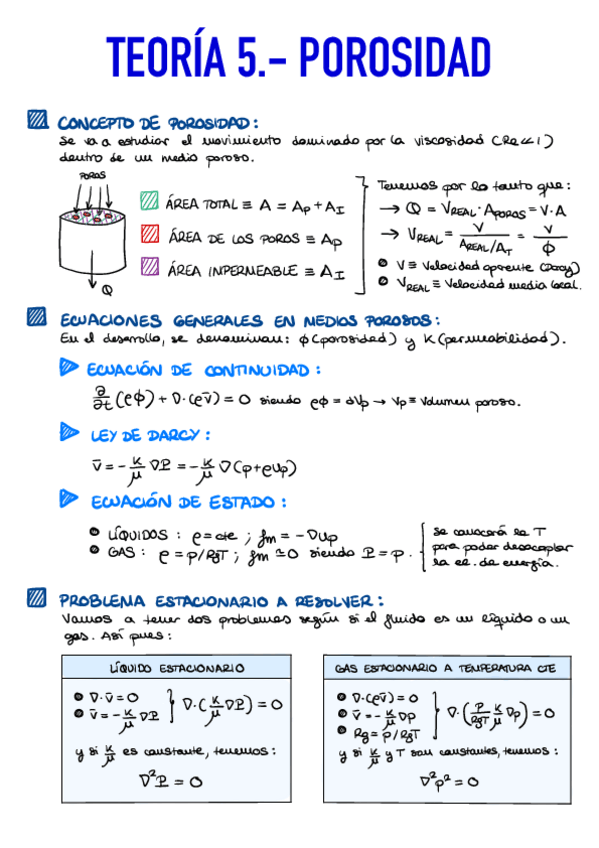 TEORÍA 5.- POROSIDAD
CONCEPTO DE POROSIDAD:
Se va a estudiar el movimiento dominado por la viscosidad (Re≪1)
dentro de un medio poroso.
POROS
Q
ÁREA TOTAL ≡ A = Ap + AI
ÁREA DE LOS POROS ≡ Ap
ÁREA IMPERMEABLE ≡ AI
Tenemos por lo tanto que:
→ Q = VREAL · APOROS = V·A
→ VREAL = V / (AREAL/AT) = V/ϕ
V ≡ Velocidad aparente (Darcy)
VREAL ≡ Velocidad media local.
ECUACIONES GENERALES EN MEDIOS POROSOS:
En el desarrollo, se denominan: ϕ(porosidad) y K(permeabilidad).
ECUACIÓN DE CONTINUIDAD:
∂/∂t (ρϕ) + ∇·(ρv̄) = 0 siendo ρϕ = dVp → Vp ≡ Volumen poroso.
LEY DE DARCY:
v̄ = - K/μ ∇P = - K/μ ∇(p+ρUp)
ECUACIÓN DE ESTADO:
LÍQUIDOS: ρ = cte ; fm = -∇Up
GAS: ρ = p/RgT ; fm ≃ 0 siendo P = p.
se conocerá la T
para poder desacoplar
la ec. de energía.
PROBLEMA ESTACIONARIO A RESOLVER:
Vamos a tener dos problemas según si el fluido es un líquido o un
gas. Así pues:
LÍQUIDO ESTACIONARIO
∇·v̄ = 0
v̄ = - K/μ ∇P
∇·(K/μ ∇P) = 0
y si K/μ es constante, tenemos:
∇²P = 0
GAS ESTACIONARIO A TEMPERATURA CTE
∇·(ρv̄) = 0
v̄ = - K/μ ∇p
Rg = p/RgT
∇·(P/RgT K/μ ∇p) = 0
y si K/μ y T son constantes, tenemos:
∇²p² = 0